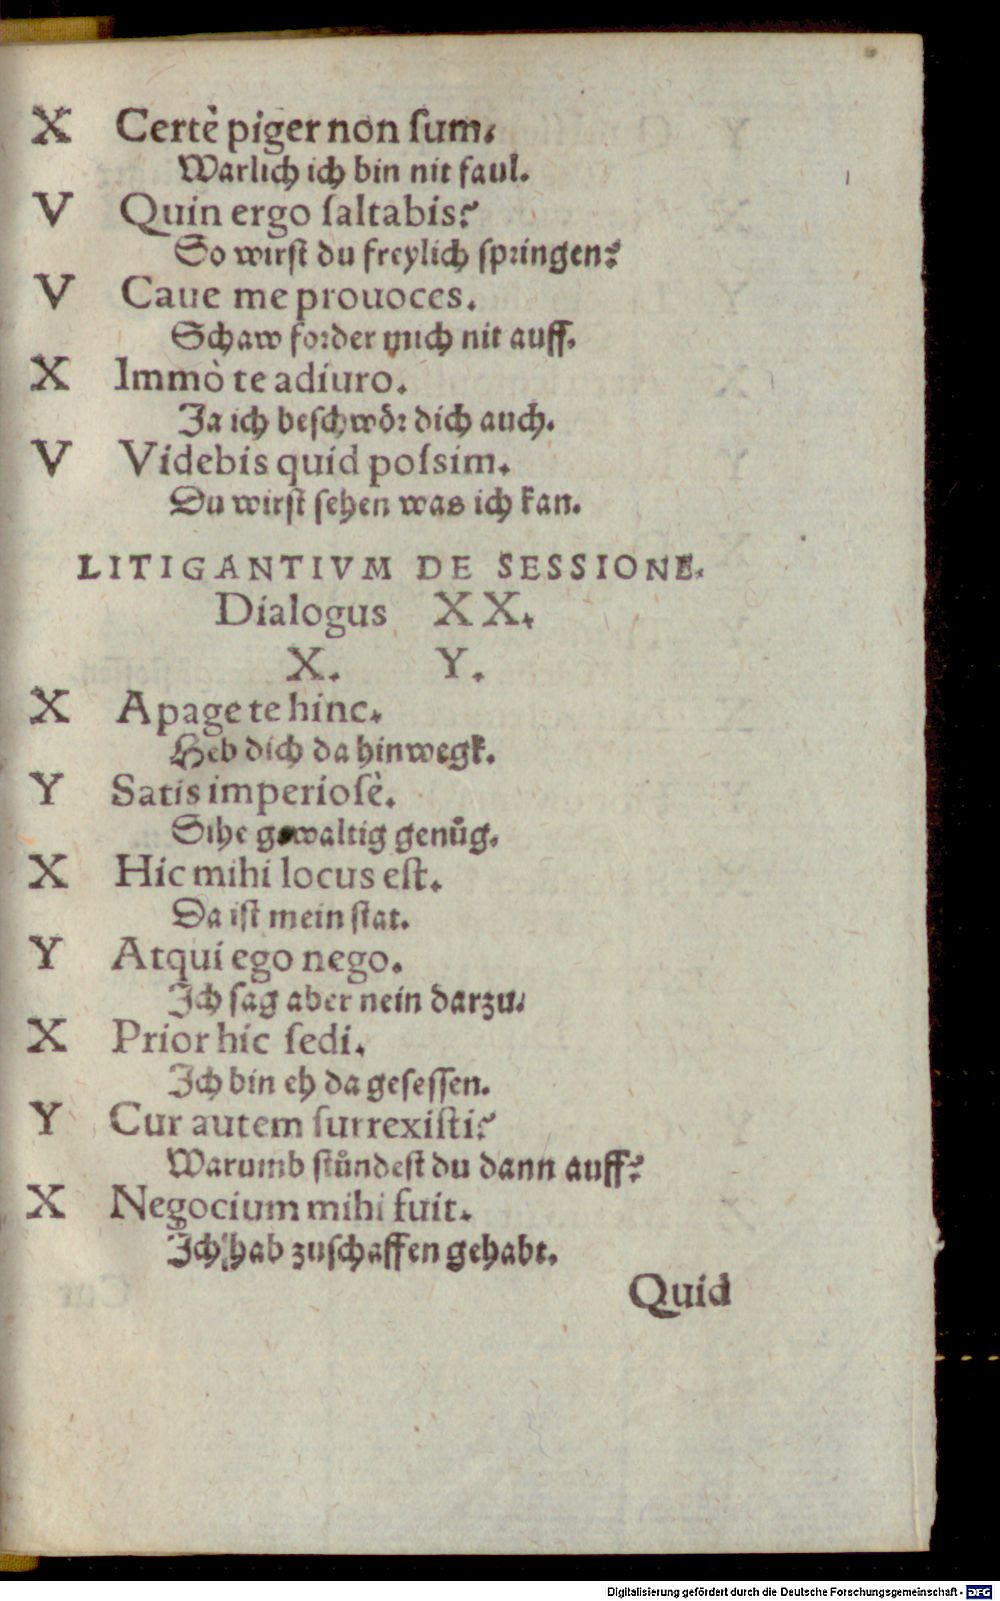 X Certè piger non ſum.
Warlich ich bin nit faul.
V Quin ergo ſaltabis?
So wirſt du freylich ſpringen?
V Caue me prouoces.
Schaw forder mich nit auff.
X Immò te adiuro.
Ja ich beſchwoͤr dich auch.
V Videbis quid poſsim.
Du wirſt ſehen was ich kan.
LITIGANTIVM DE SESSIONE.
Dialogus XX.
X. Y.
X Apage te hinc.
Heb dich da hinwegk.
Y Satis imperioſè.
Sihe gewaltig genůg.
X Hic mihi locus eſt.
Da iſt mein ſtat.
Y Atqui ego nego.
Ich ſag aber nein darzu.
X Prior hic ſedi.
Ich bin eh da geſeſſen.
Y Cur autem ſurrexiſti?
Warumb ſtůndeſt du dann auff?
X Negocium mihi fuit.
Ich hab zuſchaffen gehabt.
Quid
Digitalisierung gefördert durch die Deutsche Forschungsgemeinschaft - DFG